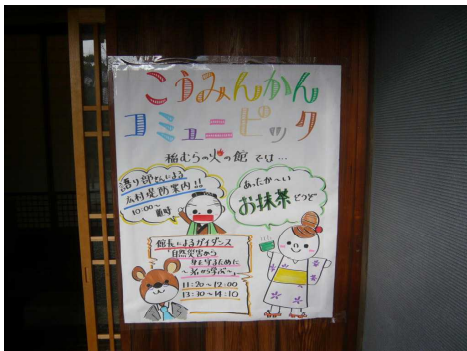 こうみんかん
コミュニピック
稲むらの火の館 では…
語り部さんによる
広村堤防案内!!
10:00～ 随時
あったか〜い
お抹茶 どうぞ
館長によるガイダンス
「自然災害から
身を守るために
11:20～12:00
13:30～14:10